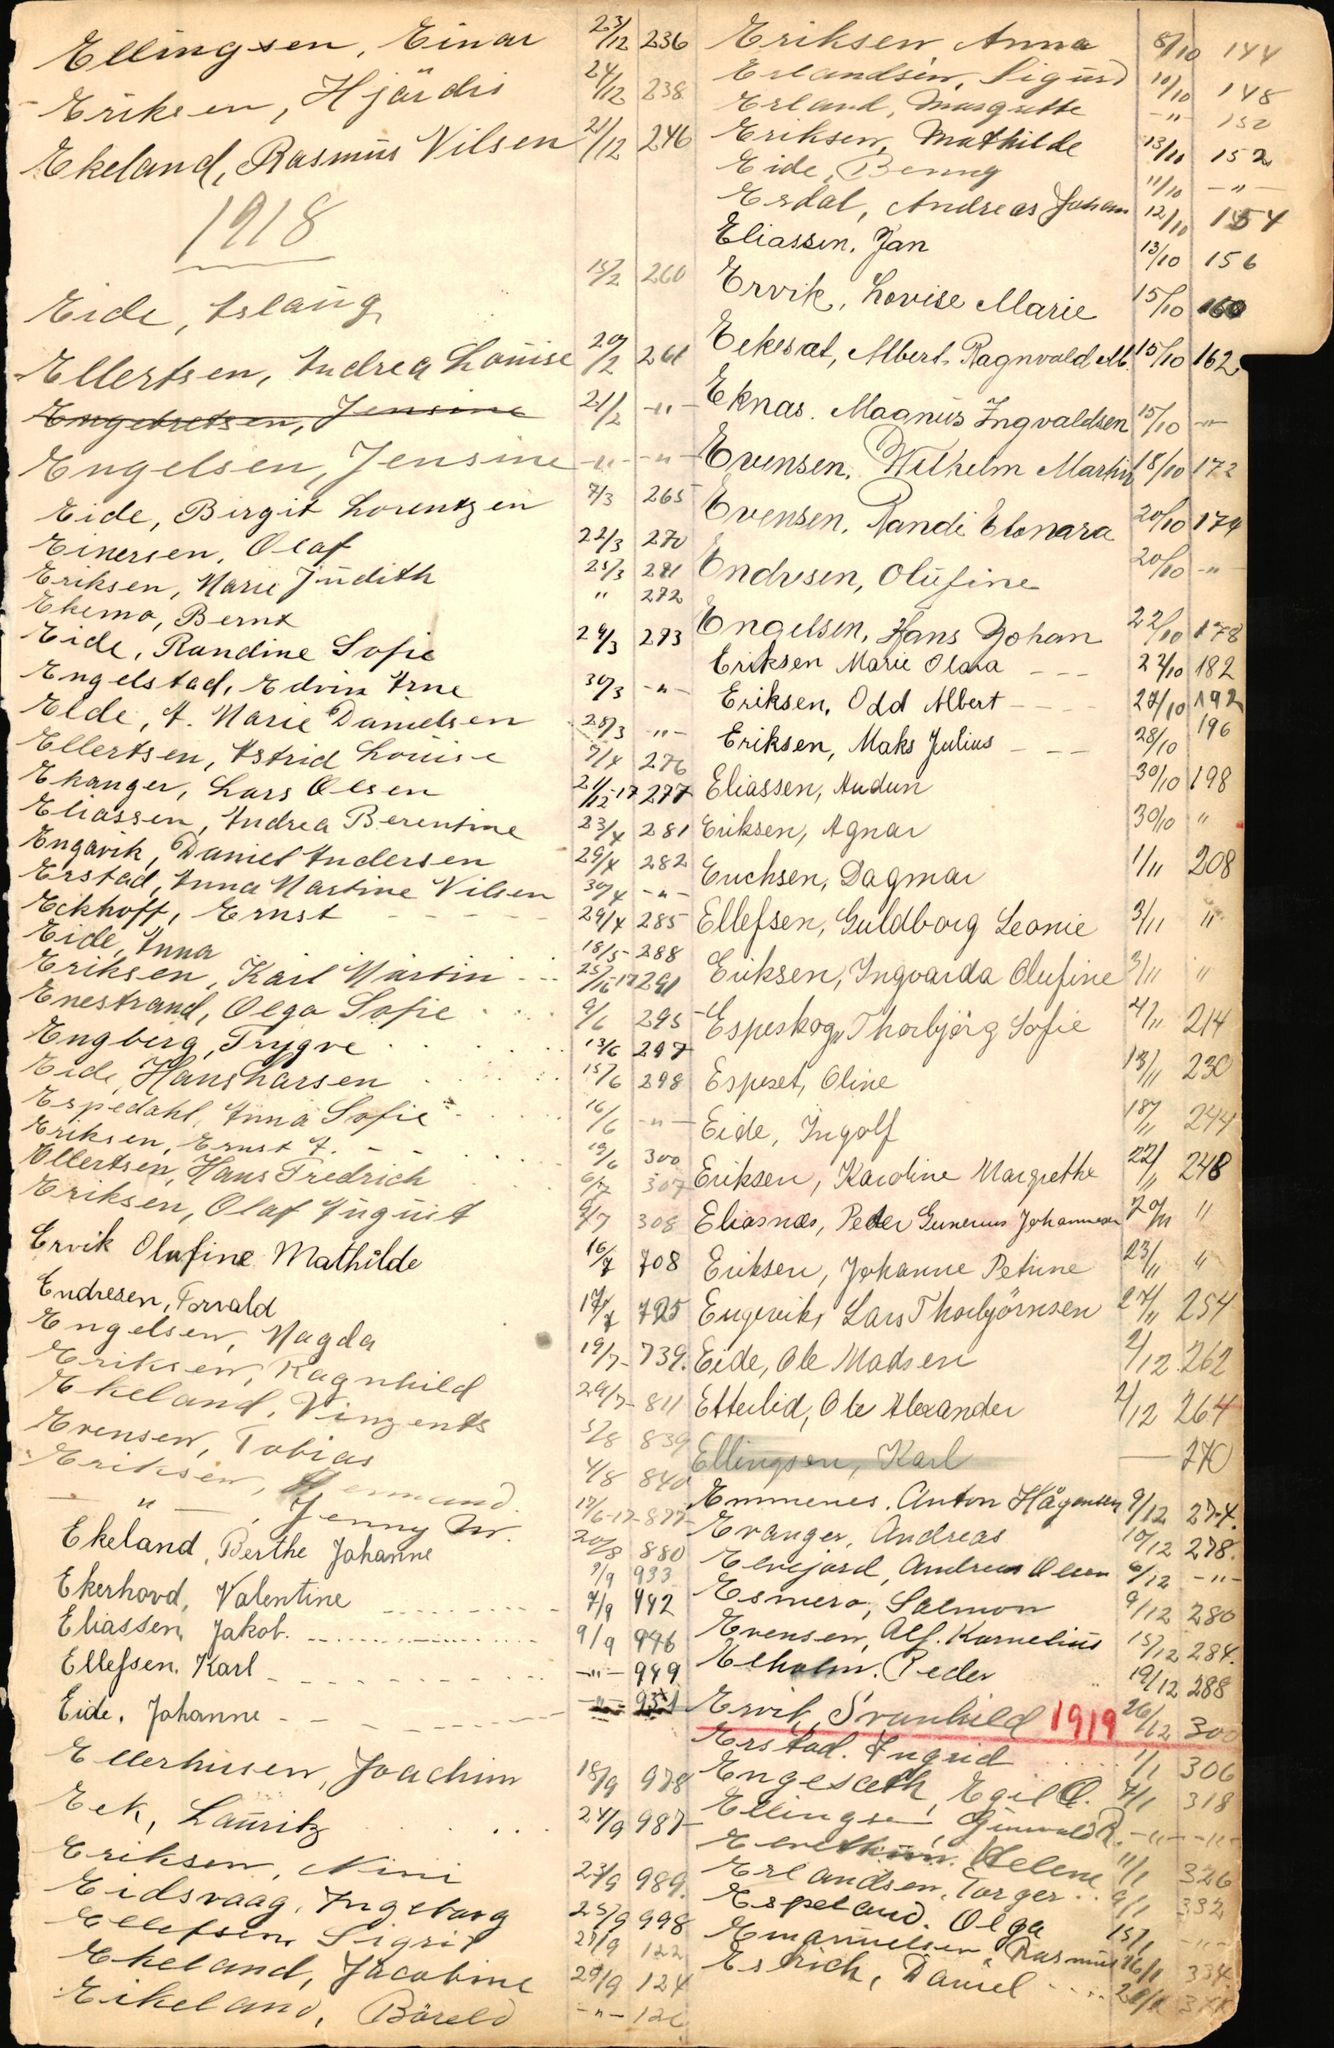 Ellingsen, Einar 23/12 236
Eriksen, Hjärdis 24/12 238
Ekeland, Rasmus Nilsen 21/12 246
1918
Eide, Aslaug 15/2 260
Ellertsen, Andrea Louise 20/2 261
Engebretsen, Jensine 21/2 -"-
Engelsen, Jensine -"- -"-
Eide, Birgit Lorentzen 7/3 265
Einersen, Olaf 22/3 270
Eriksen, Marie Judith 25/3 271
Ekemo, Bernt " 272
Eide, Randine Sofie 29/3 273
Engelstad, Edvin Arne 30/3 -"-
Eide, A. Marie Danielsen 28/3 -"-
Ellertsen, Astrid Louise 7/4 276
Ekanger, Lars Olsen 21/12-17 277
Eliassen, Andrea Berentine 23/4 281
Engavik, Daniel Andersen 29/4 282
Erstad, Anna Martine Nilsen 30/4 -"-
Eckhoff, Ernst 29/4 285
Eide, Anna 18/5 288
Eriksen, Karl Martin 291
Enestrand, Olga Sofie 9/6 295
Engberg, Trygve 13/6 297
Eide, Hans Larsen 15/6 298
Espedahl, Anna Sofie 16/6 -"-
Eriksen, Ernst A. 19/6 300
Ellertsen, Hans Fredrich 6/7 307
Eriksen, Olaf August 9/7 308
Ervik Olufine Mathilde 16/7 708
Endresen, Torvald 17/7 725
Engelsen, Magda 19/7 739.
Eriksen, Ragnhild 29/7 811
Ekeland, Vinzents 5/8 839
Evensen, Tobias 4/8 840
Eriksen, Hermand. 17/6-17 877
— " — , Jenny M. 20/8 880
Ekeland, Berthe Johanne 9/9 933
Ekerhovd, Valentine 7/9 942
Eliassen, Jakob. 9/9 946
Ellefsen, Karl -"- 949
Eide, Johanne -"- 951
Ellerhusen, Joachim 18/9 978
Eek, Lauritz 24/9 987
Eriksen, Nini 23/9 989.
Eidsvaag, Ingeborg 25/9 998
Ellefsen, Sigrid 27/9 122
Ekeland, Jacobine 29/9 124
Eikeland, Båreld -"- 126
Eriksen Anna 8/10 144
Erlandsen, Sigurd 10/10 148
Erland, Margrette -"- 150
Eriksen, Mathilde 13/10 152
Eide, Benny 11/10 -"-
Erdal, Andreas Johan 12/10 154
Eliassen, Jan 13/10 156
Ervik, Lovise Marie 15/10 160
Eekesæt, Albert Ragnvald Alb. 15/10 162
Eknas. Magnus Ingvaldsen 15/10 -"-
Evensen, Wilhelm Martin 18/10 172
Evensen, Randi Elonara 20/10 174
Endresen, Olufine 20/10 -"-
Engelsen, Hans Johan 22/10 178
Eriksen Marie Olava 22/10 182
Eriksen, Odd Albert 27/10 192
Eriksen, Maks Julius 28/10 196
Eliassen, Audun 30/10 198
Eriksen, Agnar 30/10 "
Erichsen, Dagmar 1/11 208
Ellefsen, Guldborg Leonie 3/11 "
Eriksen, Ingvarda Olufine 3/11 "
Espeskog, Thorbjörg Sofie 4/11 214
Espeset, Oline 13/11 230
Eide, Ingolf 18/11 244
Eriksen, Karoline Margrethe 22/11 248
Eliasnæs, Peder Gunerius Johannesen 20/11 "
Eriksen, Johanne Petrine 23/11 "
Engevik, Lars Thorbjørnsen 27/11 254
Eide, Ole Madsen 2/12 262
Etterlid, Ole Alexander 2/12 264
Ellingsen, Karl — 270
Emmenes, Anton Hågensen 9/12 274.
Evanger, Andreas 10/12 278.
Elvejord, Andreas Olsen 6/12 -"-
Esmero, Salmon 9/12 280
Evensen, Alf. Kornelius 15/12 284.
Elholm, Peder 19/12 288
Ervik, Svanhild 26/12 300
1919
Erstad. Ingrid 1/1 306
Engesæth, Egil O. 7/1 318
Ellingsen Gunvald R. -"- -"-
Helene 11/1 326
Erlandsen, Torger 9/1 332
Espeland. Olga 15/1 -"-
Emanuelsen, Rasmus 16/1 334.
Esrich, Daniel 20/1